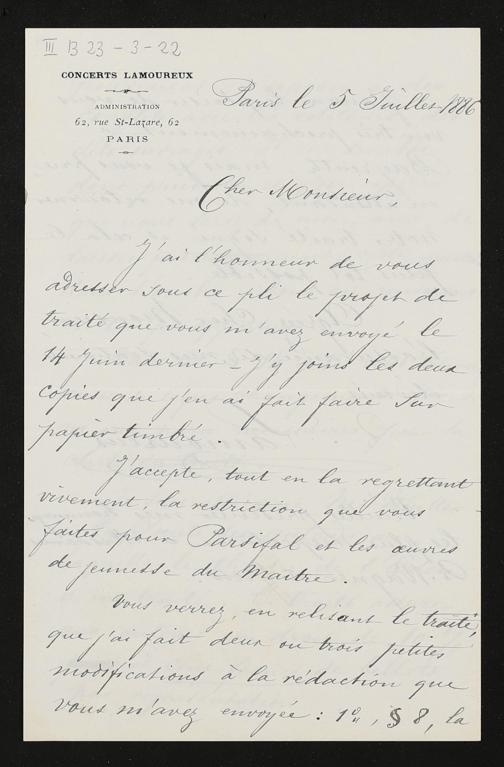 III B 23 - 3 - 22
CONCERTS LAMOUREUX
ADMINISTRATION
62, rue St-Lazare, 62
PARIS
Paris le 5 Juillet 1886
Cher Monsieur,
J'ai l'honneur de vous
adresser sous ce pli le projet de
traité que vous m'avez envoyé le
14 Juin dernier - J'y joins les deux
copies que j'en ai fait faire sur
papier timbré.
J'accepte, tout en la regrettant
vivement, la restriction que vous
faites pour Parsifal et les œuvres
de jeunesse du Maître.
Vous verrez, en relisant le traité,
que j'ai fait deux ou trois petites
modifications à la rédaction que
vous m'avez envoyée : 1º, § 8, la